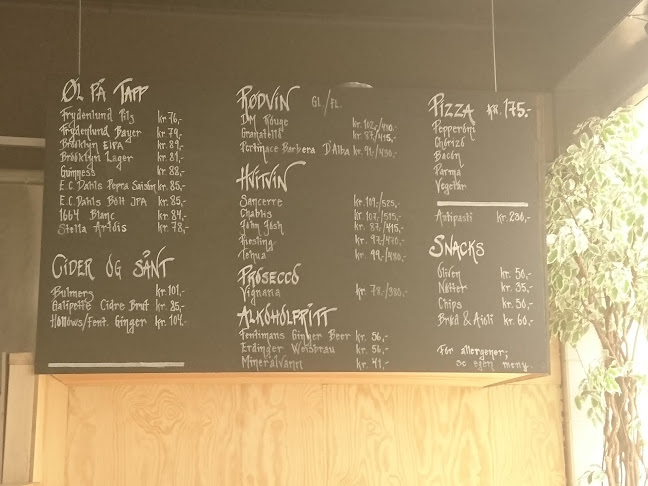 ØL PÅ TAPP
Frydenlund Pils kr 76,-
Frydenlund Bayer kr 79,-
Brooklyn EIPA kr 89,-
Brooklyn Lager kr 81,-
Guinness kr 88,-
E.C. Dahls Pepna Saison kr 85,-
E.C. Dahls Bott IPA kr 85,-
1664 Blanc kr 84,-
Stella Artois kr 78,-
CIDER OG SÅNT
Bulmers kr 101,-
Galipette Cidre Brut kr 85,-
Hollows/Fent. Ginger kr 104,-
RØDVIN GL/FL.
DM Rouge kr. 102,-/490.-
kr. 87/415,-
Pertinace Barbera D'Alba kr. 91/430,-
HVITVIN
Sancerre kr. 109,-/525,-
Chablis kr. 107,-/515,-
John Josh kr. 87,/415,-
Riesling kr. 97,-/470,-
kr. 99,-/480,-
PROSECCO
Vignana kr. 78,-/380,-
ALKOHOLFRITT
Fentimans Ginger Beer kr. 56,-
Erdinger Weisbrau kr. 56,-
Mineralvann kr. 41,-
PIZZA KR. 175.-
Pepperoni
Chorizo
Bacon
Parma
Vegetar
Antipasti kr 230,-
SNACKS
Oliven kr. 50,-
Nøtter kr. 35,-
Chips kr. 30,-
Brød & Ajoli kr. 60,-
For allergener;
se egen meny.